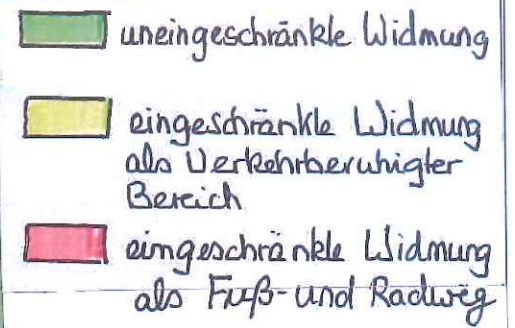 uneingeschränkte Widmung
eingeschränkte Widmung
als Verkehrberuhigter
Bereich
eingeschränkte Widmung
als Fuß- und Radweg